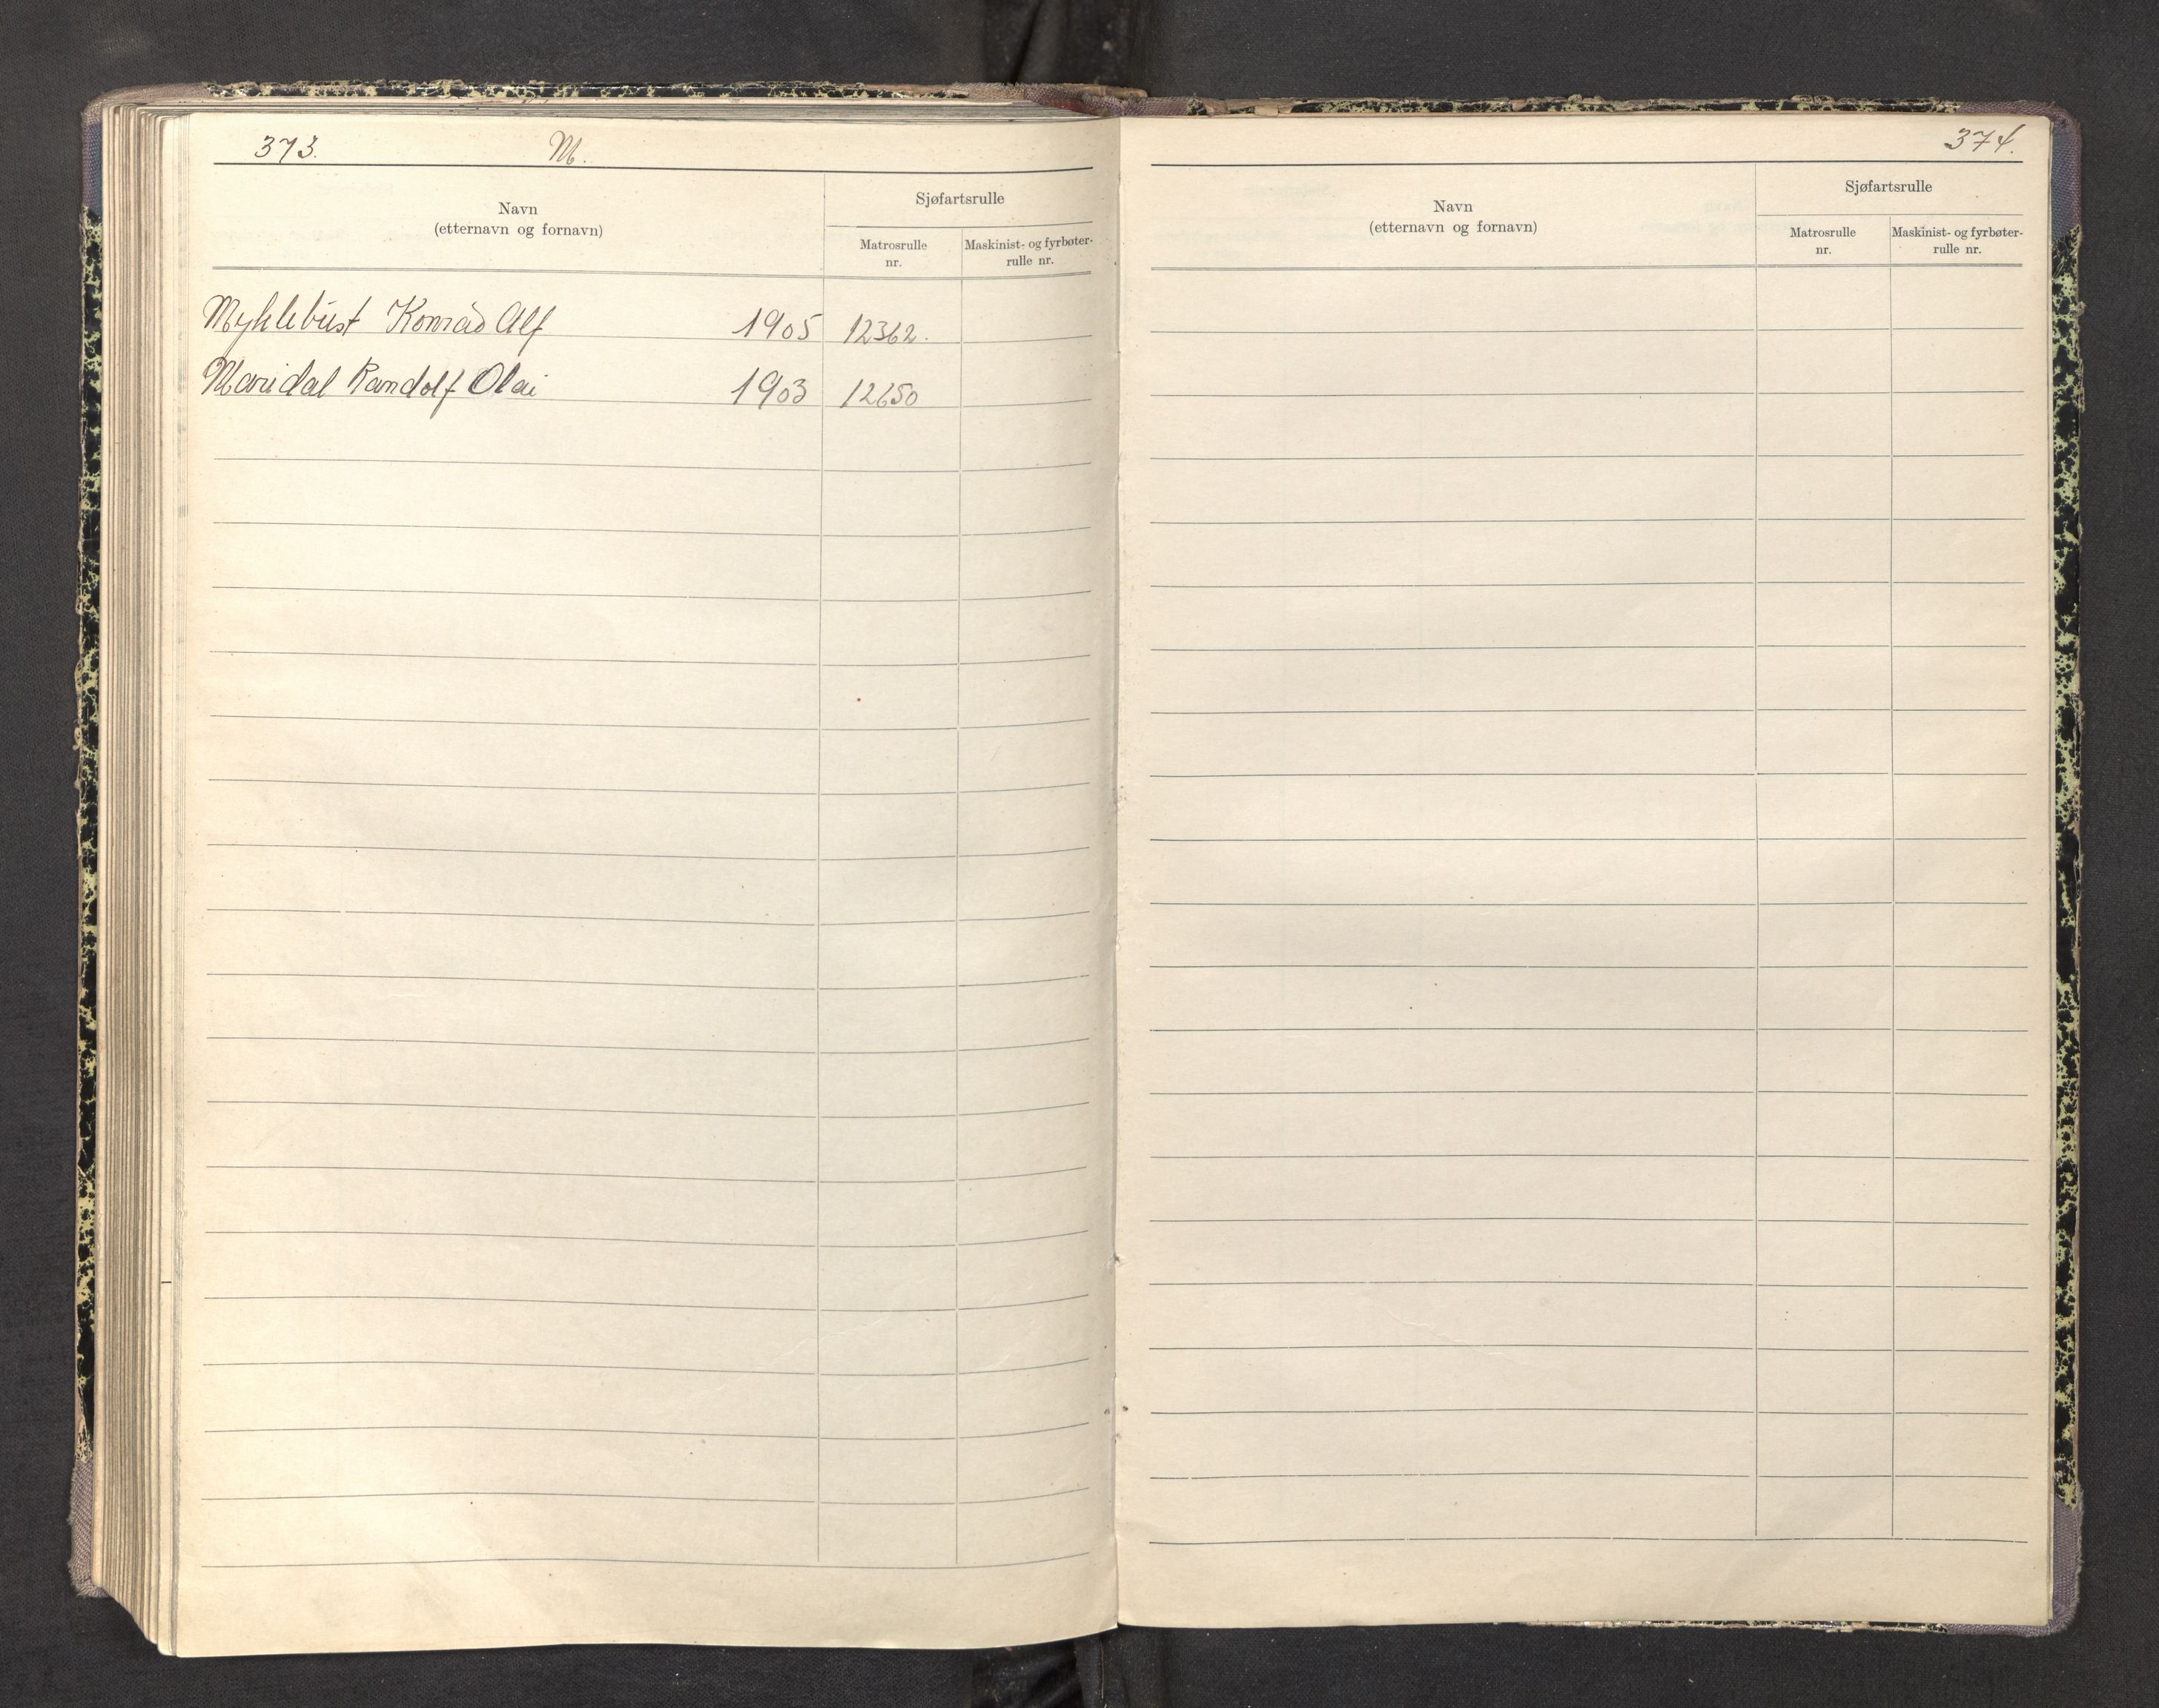 373. M.
Navn
(etternavn og fornavn)
Sjøfartsrulle
Matrosrulle
nr.
Maskinist- og fyrbøter-
rulle nr.
Myklebust Konrad Alf 1905 12362.
Randolf Olai 1903 12650
374.
Navn
(etternavn og fornavn)
Sjøfartsrulle
Matrosrulle
nr.
Maskinist- og fyrbøter-
rulle nr.